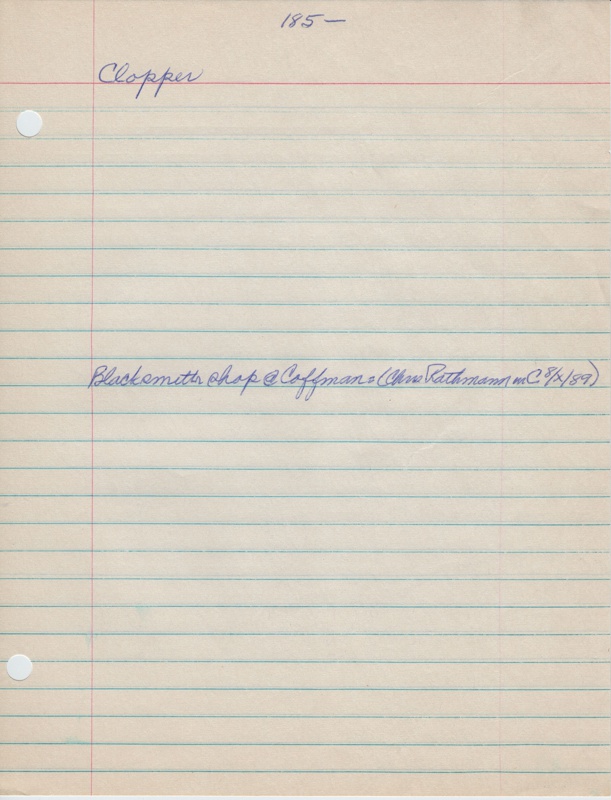 185-
Clopper
Blacksmith shop @ Coffman = (Chris Rathmann in C 8/X/89)